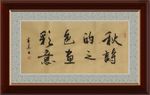 秋的色彩
詩之畫意